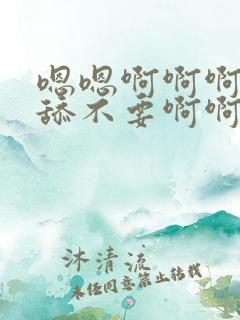 嗯嗯啊啊啊
舔不要啊啊
沐清流
未经同意禁止转载